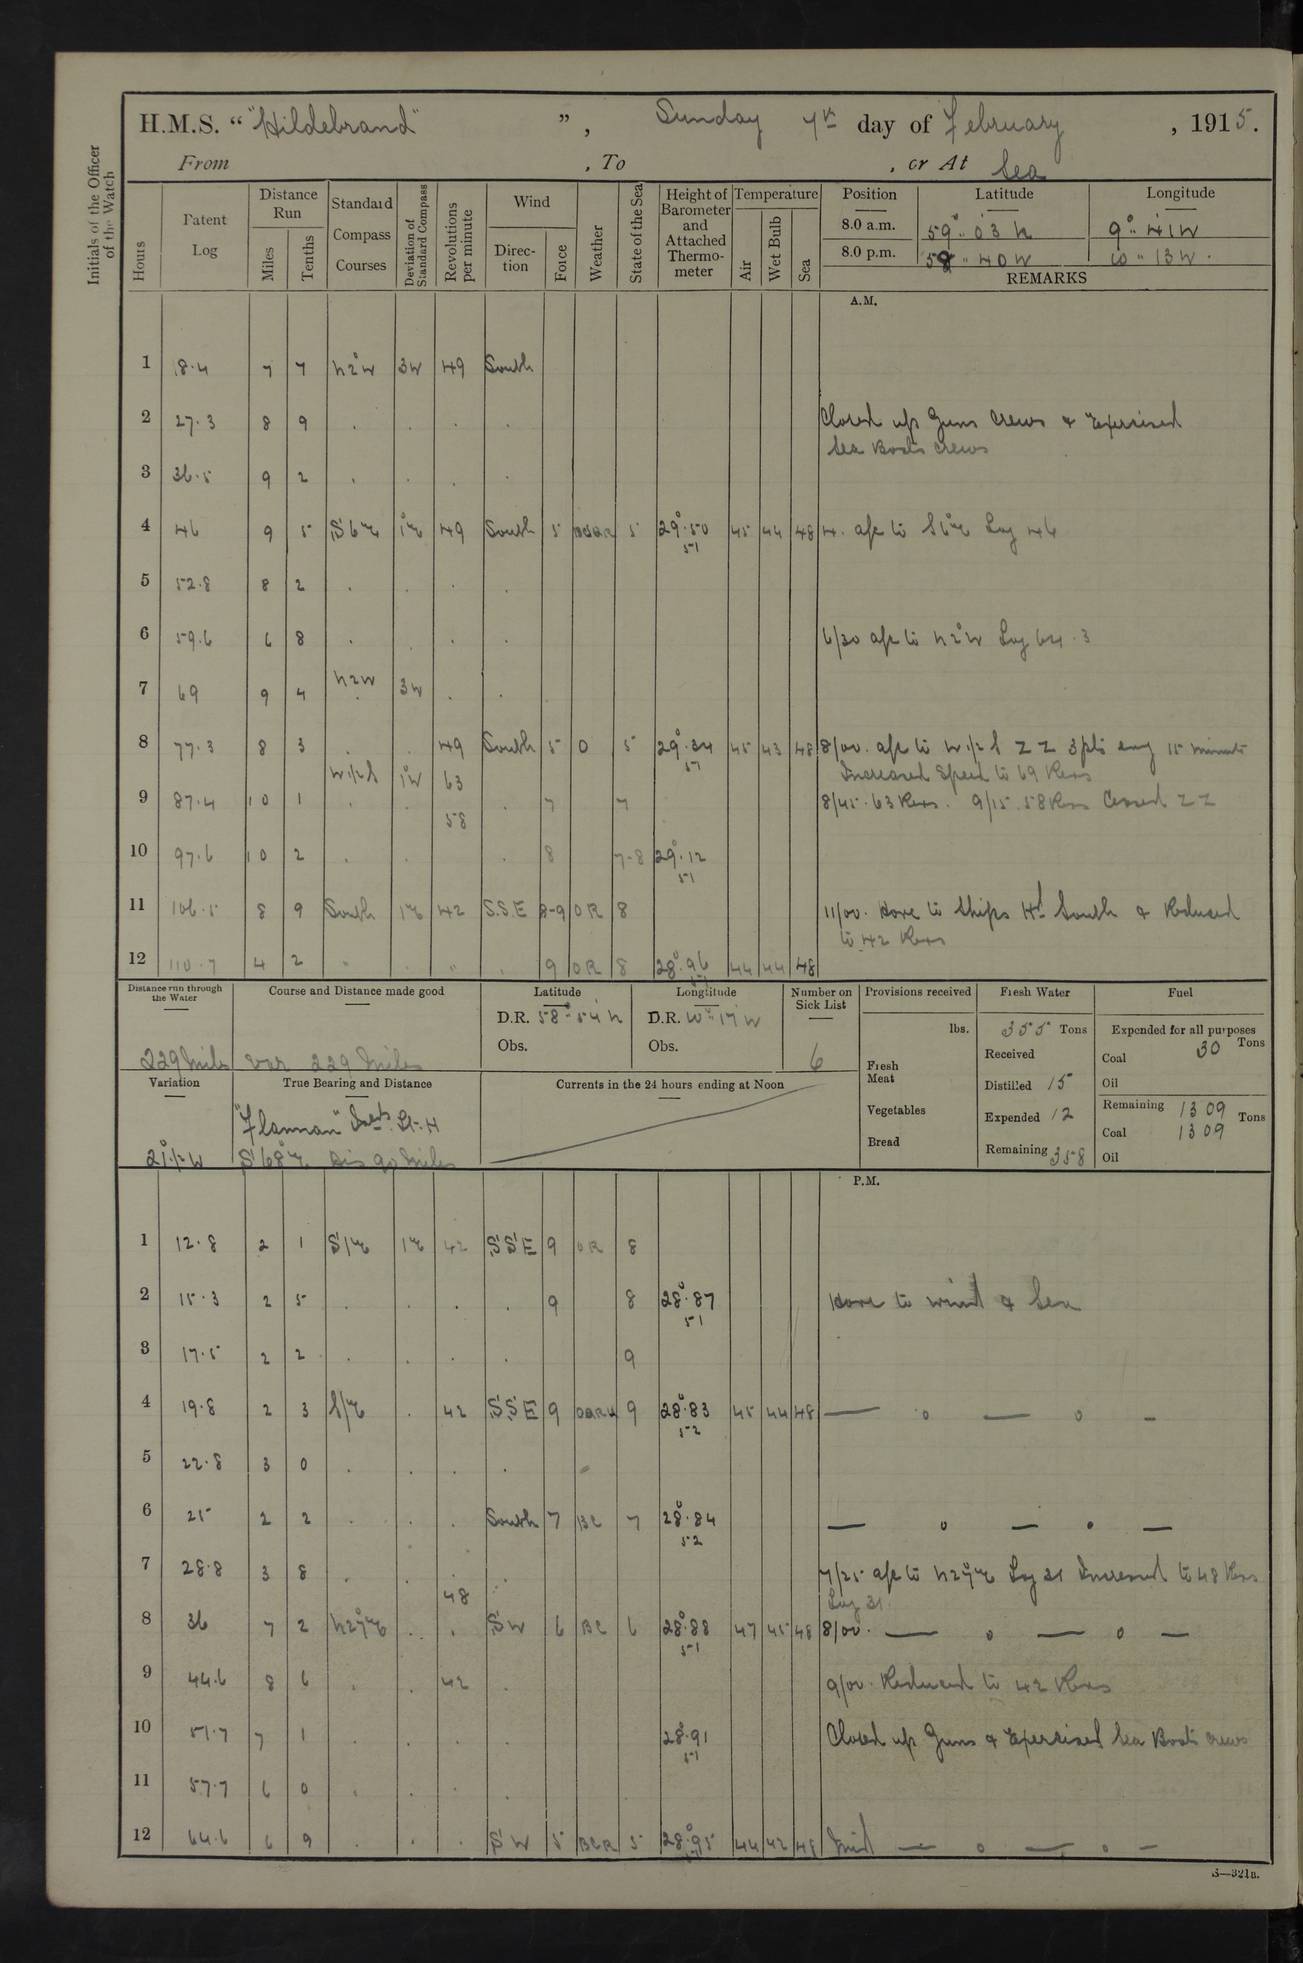 H.M.S. “ "Hildebrand" ” , Sunday 7th day of February , 1915.
From , To , or At Sea
Initials of the Officer of the Watch
Hours
Patent Log
Distance Run
Miles
Tenths
Standard Compass Courses
Deviation of Standard Compass
Revolutions per minute
Wind
Direction
Force
Weather
State of the Sea
Height of Barometer and Attached Thermometer
Temperature
Air
Wet Bulb
Sea
Position Latitude Longitude
8.0 a.m. 59° 03 N 9° 41 W
8.0 p.m. 58 " 40 N 10 " 13 W.
REMARKS
A.M.
1 18.4 7 7 N2°W 3W 49 South
2 27.3 8 9 . . . . Closed up Guns Crews & Exercised
Sea Boats crews
3 36.5 9 2 . . . .
4 46 9 5 S6E 1°E 49 South 5 5 29.50 51 45 44 48 4. a/c to S6°E Log 46
5 52.8 8 2 . . . .
6 59.6 6 8 . . . . 6/30 a/c to N2°W Log 64.3
7 69 9 4 N2W 3W . .
8 77.3 8 3 . . 49 South 5 O 5 29.34 51 45 43 48 8/00. a/c to W½S ZZ 3pts evry 15 minutes
W½S 1°W 63 Increased Speed to 69 Revs
9 87.4 10 1 . . 58 . 7 7 8/45. 63 Revs. 9/15. 58 Revs Ceased ZZ
10 97.6 10 2 . . . 8 7-8 29.12 51
11 106.5 8 9 South 1E 42 S.S.E 8-9 OR 8 11/00. Hove to Ships Hd South & Reduced
to 42 Revs
12 110.7 4 2 " . " . 9 OR 8 28.96 51 44 44 48
Distance run through the Water
229 Miles
Course and Distance made good
Var 229 Miles
Latitude
D.R. 58° 54' N
Obs.
Longitude
D.R. 10° 17' W
Obs.
Number on Sick List
6
Provisions received
lbs.
Fresh Meat
Vegetables
Bread
Fresh Water
355 Tons
Received
Distilled 15
Expended 12
Remaining 358
Fuel
Expended for all purposes
Coal 30 Tons
Oil
Remaining 1309 Tons
Coal 1309
Oil
Variation
21½W
True Bearing and Distance
"Flannan" Islds Lt. H
S68°E Dis 90 Miles
Currents in the 24 hours ending at Noon
P.M.
1 12.8 2 1 S1E 1E 42 SSE 9 OR 8
2 15.3 2 5 . . . . 9 8 28.87 51 Hove to wind & Sea
3 17.5 2 2 . . . . 9
4 19.8 2 3 S1E . 42 SSE 9 9 28.83 52 45 44 48 — o — o —
5 22.8 3 0 . . . .
6 25 2 2 . . . South 7 BC 7 28.84 52 — o — o —
7 28.8 3 8 . . 48 . 7/25 a/c to N27°E Log 31 Increased to 48 Revs
Log 31
8 36 7 2 N27°E . . SW 6 BC 6 28.88 51 47 45 48 8/00. — o — o —
9 44.6 8 6 . . 42 . 9/00. Reduced to 42 Revs
10 51.7 7 1 . . . . 28.91 51 Closed up Guns & Exercised Sea Boats crews
11 57.7 6 0 . . . .
12 64.6 6 9 . . . SW 5 BCR 5 28.95 51 44 42 48 Mid — o — o —
S—321a.